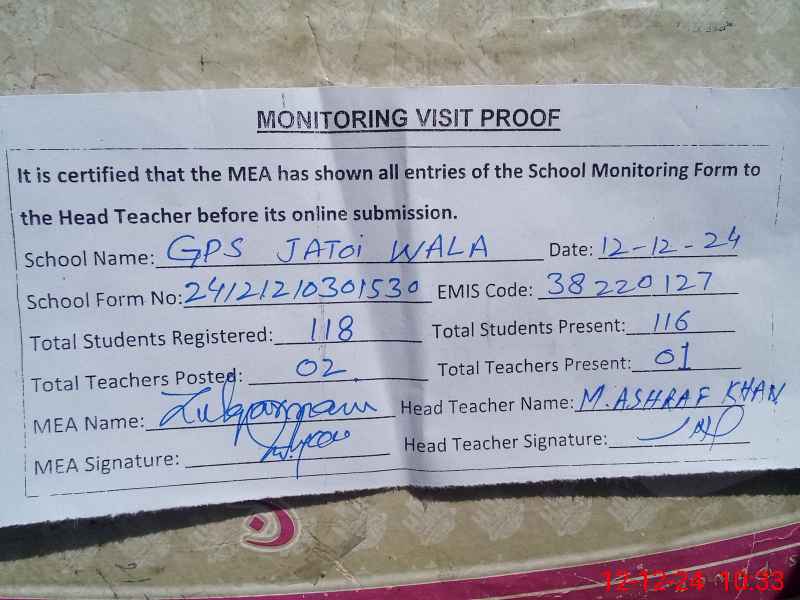 MONITORING VISIT PROOF
It is certified that the MEA has shown all entries of the School Monitoring Form to
the Head Teacher before its online submission.
School Name: GPS JATOi WALA Date: 12-12-24
School Form No: 24121210301530 EMIS Code: 38220127
Total Students Registered: 118 Total Students Present: 116
Total Teachers Posted: 02 Total Teachers Present: 01
MEA Name: Head Teacher Name: M. ASHRAF KHAN
MEA Signature: Head Teacher Signature:
12-12-24 10:33